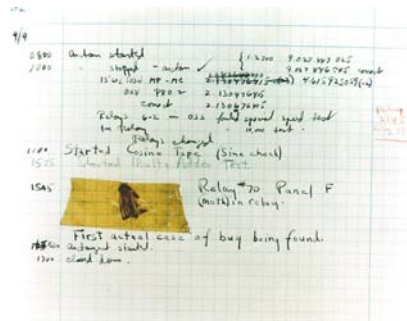 9/9
0800 antan started
1000 " stopped - antan ✓ { 1.2700 9.037 847 025
9.037 846 995 correct
13" uc (032) MP - MC 4.615925059(-2)
033 PRO 2 2.130476415
correct 2.130676415
Relays 6-2 in 033 failed special speed test
in relay " 10.00 test .
Relays changed
1100 Started Cosine Tape (Sine check)
1525 Started Multi Adder Test.
1545 Relay #70 Panel F
(moth) in relay.
First actual case of bug being found.
antangent started.
1700 closed down.